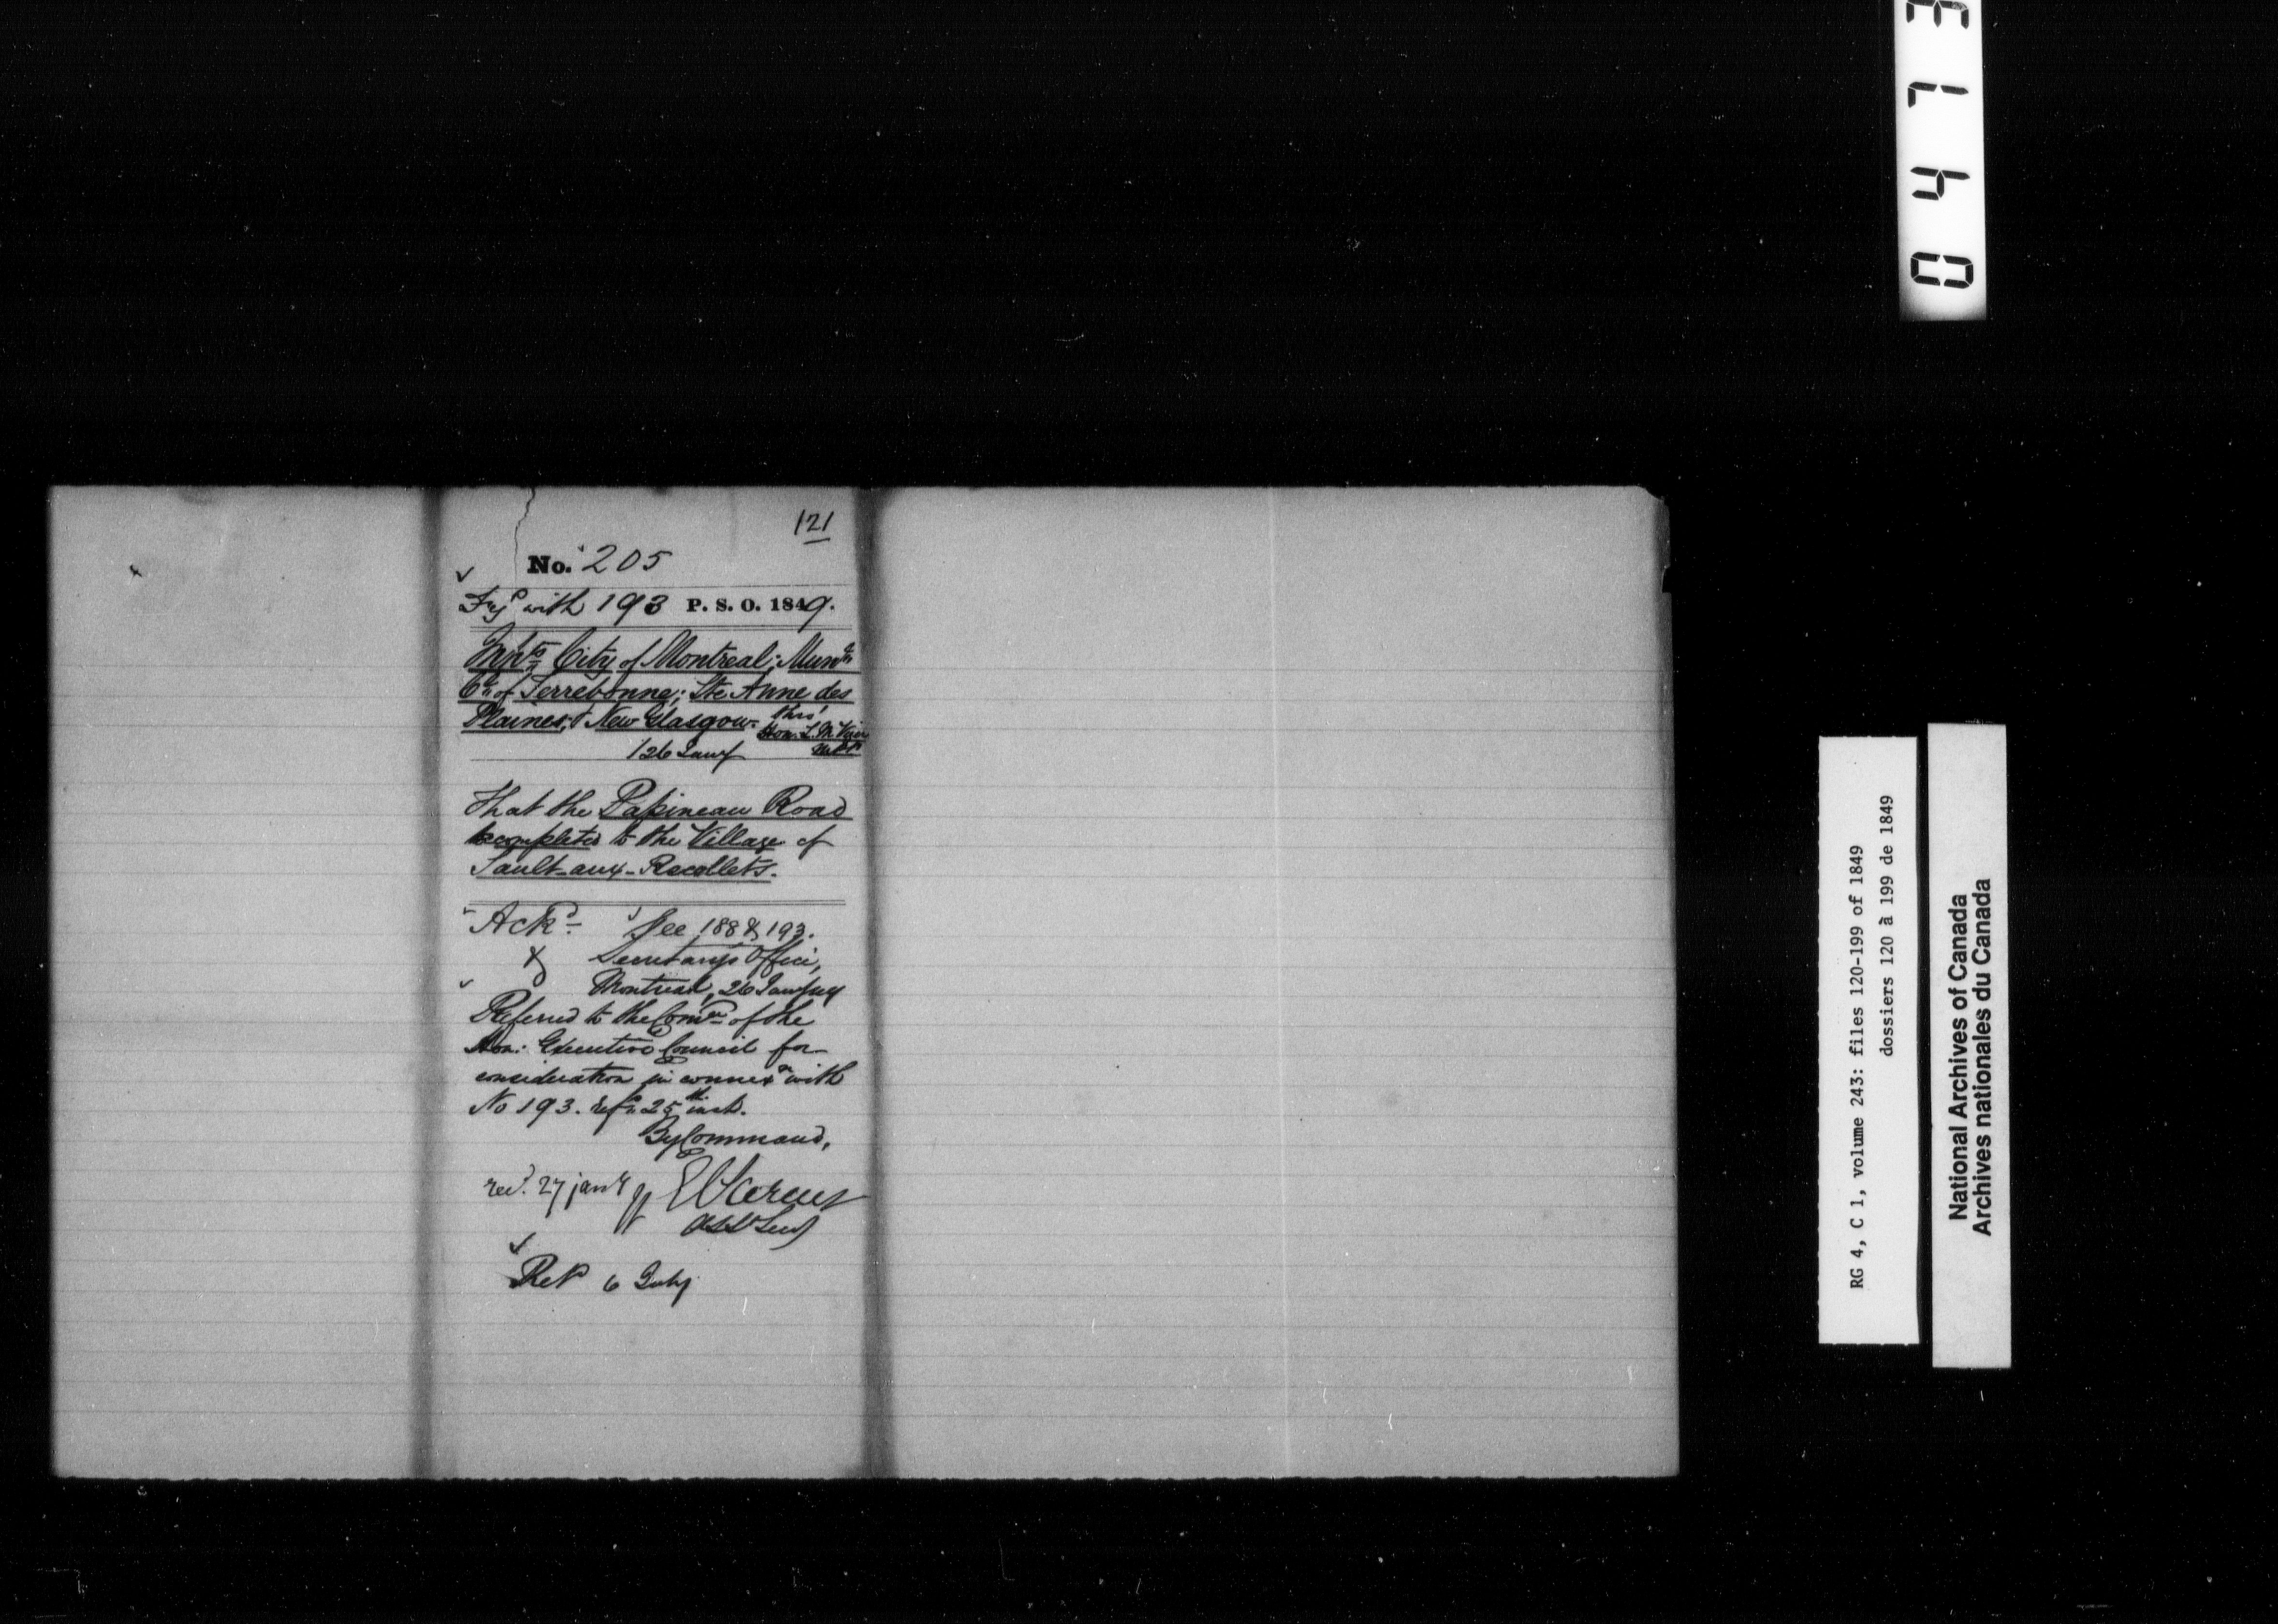 121
No. 205
with 193 P. S. O. 1849.
City of Montreal; Mun
of Terrebonne; Ste Anne des
Plaines, & New Glasgow. thro'
Hon. L. M. Viger
26 Jany M.P.P.
That the Papineau Road
be completed to the Village of
Sault-aux-Recollets.
Ackd. See 188 & 193.
& Secretary's Office,
Montreal, 26 Jany
Referred to the of the
Hon: Executive Council for
consideration in connexn with
No 193. refd 25th inst.
By Command,
recd. 27 jany
Asst Secy
Ret 6 July
0473
RG 4, C 1, volume 243: files 120-199 of 1849
dossiers 120 à 199 de 1849
National Archives of Canada
Archives nationales du Canada